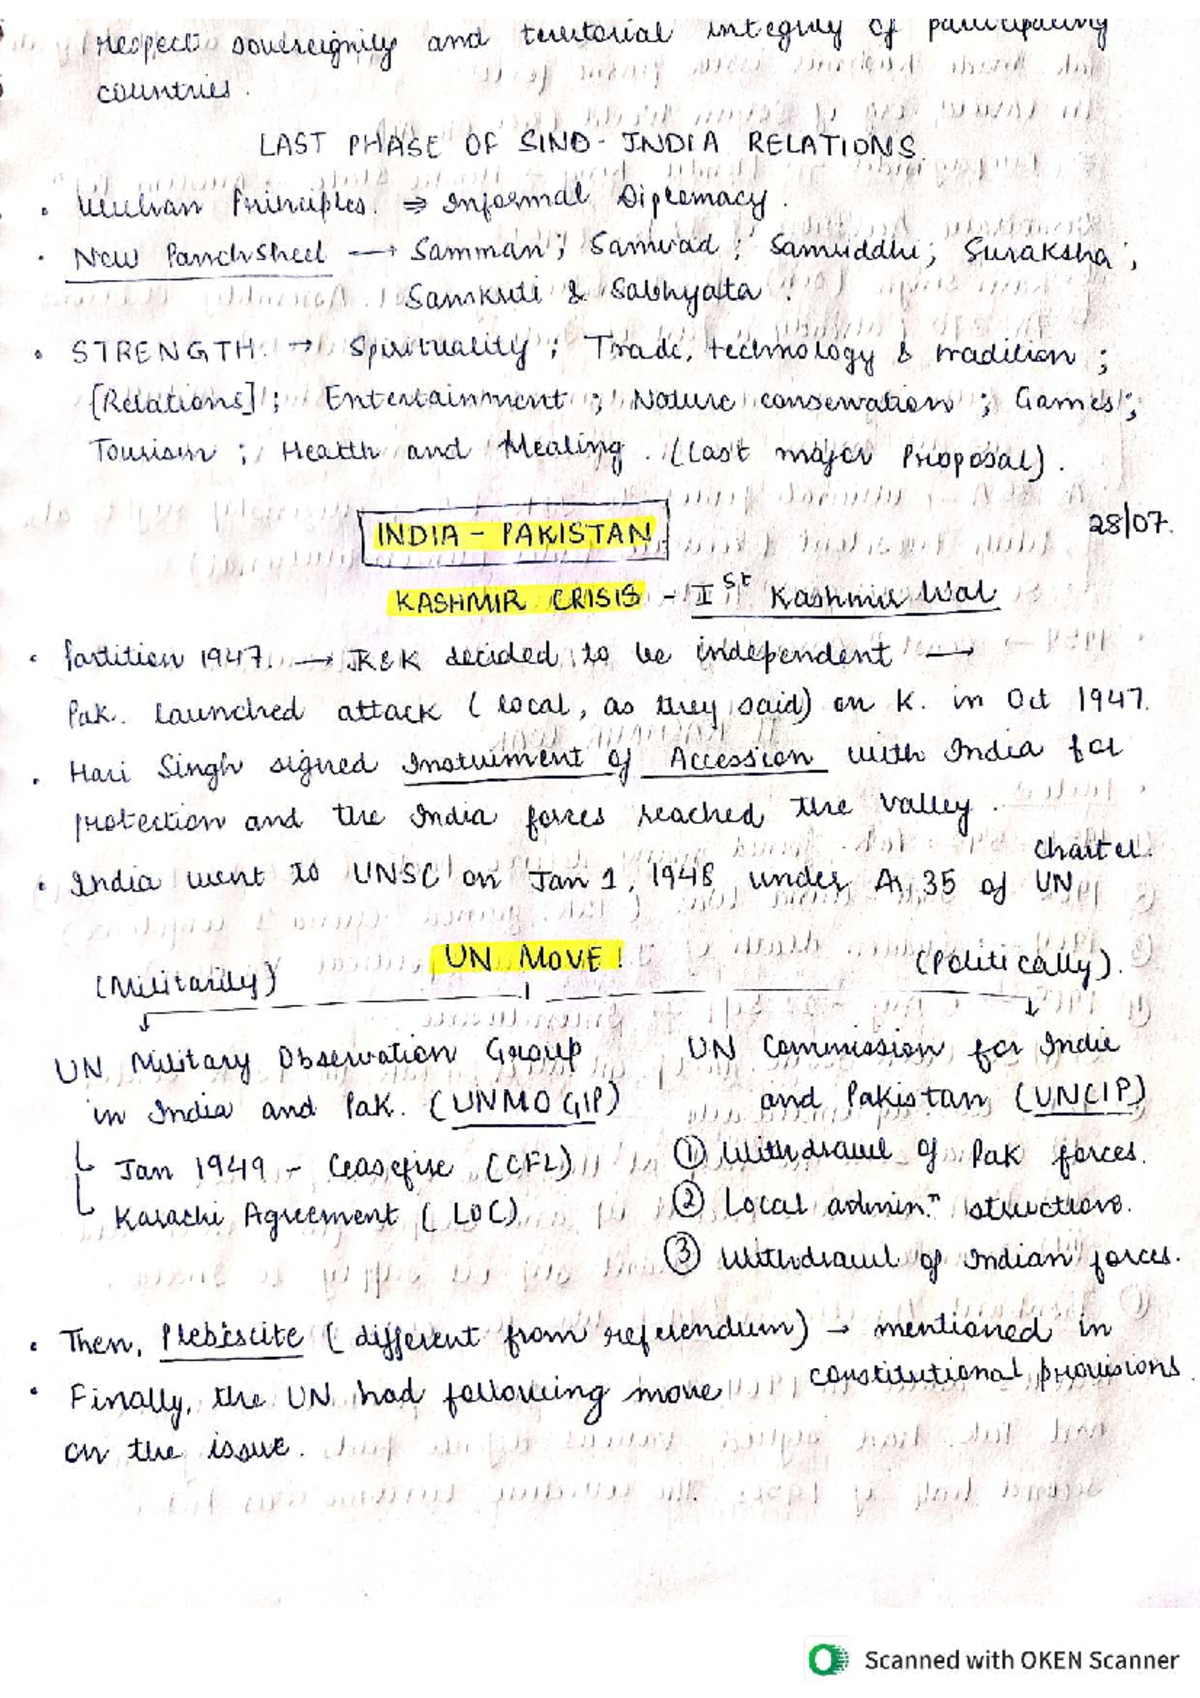 respect sovereignity and territorial integrity of participating
countries.
LAST PHASE OF SINO-INDIA RELATIONS
• Wuhan Principles. ⇒ Informal Diplomacy.
• New Panchsheel → Samman; Samvad; Samriddhi; Suraksha;
Sanskriti & Sabhyata.
• STRENGTH. → Spirituality; Trade, technology & tradition;
[Relations]; Entertainment; Nature conservation; Games;
Tourism; Health and Healing. (Last major Proposal).
INDIA - PAKISTAN
28/07.
KASHMIR CRISIS - Ist Kashmir War
• Partition 1947. → J&K decided to be independent →
Pak. launched attack (local, as they said) on K. in Oct 1947.
• Hari Singh signed Instrument of Accession with India for
protection and the India forces reached the Valley.
• India went to UNSC on Jan 1, 1948 under Ar, 35 of UN
charter.
UN MOVE!
(Militarily)
(Politically).
UN Military Observation Group
in India and Pak. (UNMOGIP)
Jan 1949 - Ceasefire (CFL)
Karachi Agreement (LOC)
UN Commission for India
and Pakistan (UNCIP)
① Withdrawl of Pak forces.
② Local admin.n structure.
③ Withdrawl of Indian forces.
• Then, Plebiscite (different from referendum) → mentioned in
constitutional provisions
• Finally, the UN had following move
on the issue.
Scanned with OKEN Scanner